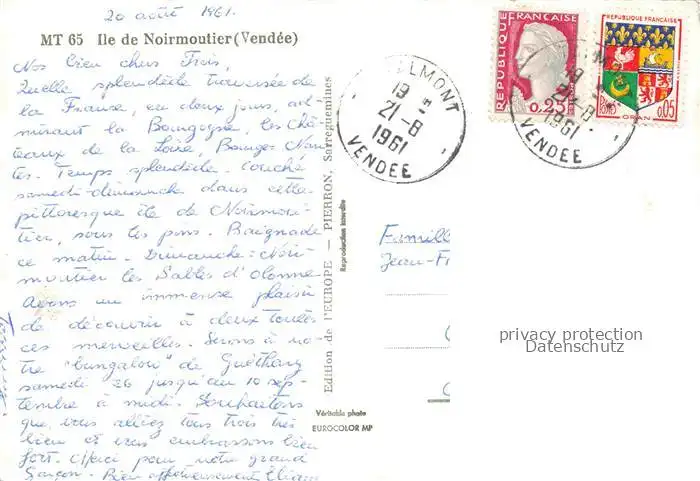 20 août 1961.
MT 65 Ile de Noirmoutier (Vendée)
Nos bien chers Trois,
Quelle splendide traversée de
la France, en deux jours, ad-
mirant la Bourgogne, les Châ-
teaux de la Loire, Bourges Nan-
tes. Temps splendide. Couché
samedi-dimanche dans cette
pittoresque île de Noirmou-
tier, sous les pins. Baignade
ce matin. Dimanche: Noir-
moutier les Sables d'Olonne
Avons un immense plaisir
de découvrir à deux toutes
ces merveilles. Serons à no-
tre "bungalow" de Guéthary
samedi 26 jusqu'au 10 sep-
tembre à midi. Souhaitons
que vous alliez tous trois très
bien et vous embrassons bien
fort. Merci pour notre grand
garçon. Bien affectueusement
Edition de l'EUROPE — PIERRON, Sarreguemines
Reproduction interdite
Véritable photo
EUROCOLOR MP
LMONT
19
21-8
1961
VENDEE
REPUBLIQUE FRANÇAISE
0,25
REPUBLIQUE FRANÇAISE
POSTES
0,05
ORAN
19
21-8
1961
VENDEE
Famill
Jean-F
privacy protection
Datenschutz